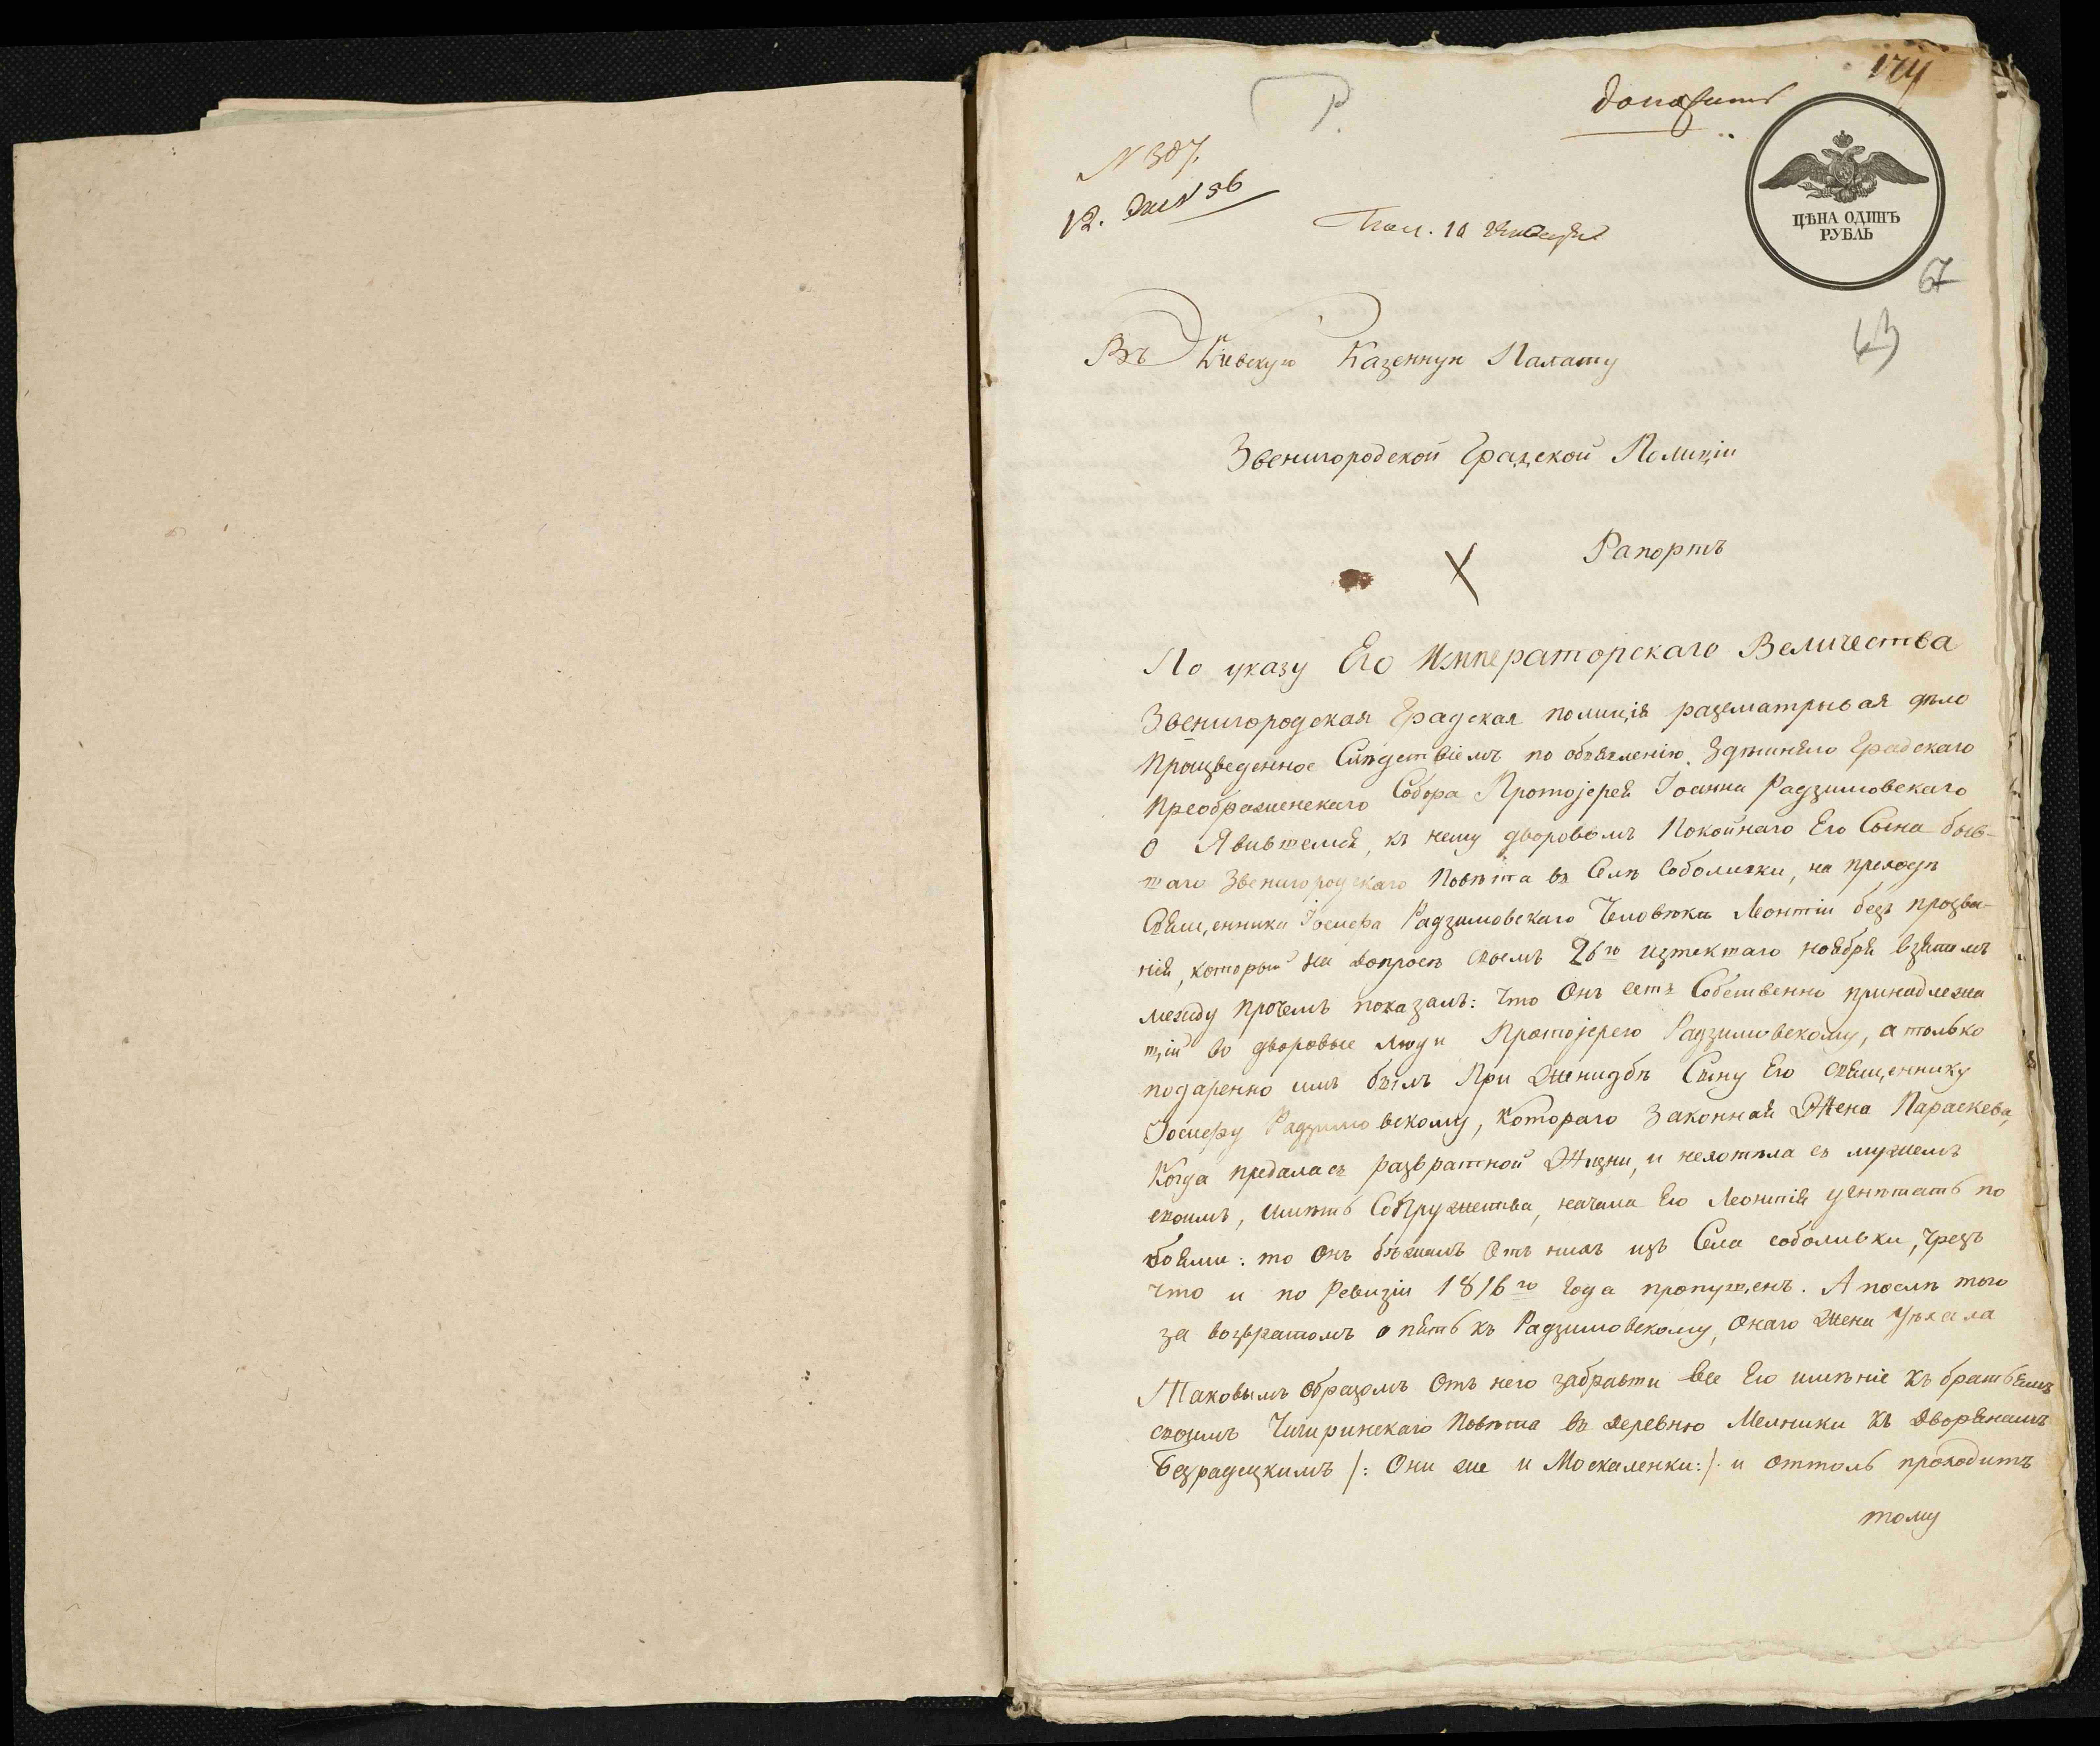 174
доложить
N 307.
12.
Пол. 10 Генваря
ЦѢНА ОДИНЪ
РУБЛЬ
67
63
Въ Кіевскую Казенную Палату
Звенигородской Градской Полиціи
Рапортъ
По указу Его Императорскаго Величества
Звенигородская Градская полиція разсматрывая дѣло
Произведенное Слѣдствіемъ по объявленію Здѣшняго Градскаго
Преображенскаго Собора Протоіерея Іоанна Радзимовскаго
о Явившемся, къ нему дворовомъ Покойнаго Его Сына быв-
шаго Звенигородскаго Повѣта въ Селѣ Соболивки, на приходѣ
Священника Іосифа Радзимовскаго Человѣка Леонтіи безъ прозва-
нія, который на допросѣ своемъ 26го изтекшаго ноября взятомъ
между прочемъ показалъ: Что Онъ есть Собственно принадлежа
щій во дворовые люди Протоіерею Радзимовскому, а только
подаренно имъ былъ При Женидбѣ Сыну Его священнику
Іосифу Радзимовскому, Котораго Законная Жена Параскева,
Когда предалась развратной Жизни, и нехотѣла съ мужемъ
своимъ, имѣть Сопружества, начала Его Леонтія угнѣтать по
боями: то Онъ бѣжалъ Отъ нихъ изъ Села соболивки, чрезъ
что и по Ревизіи 1816го Года пропущенъ. А послѣ того
за возвратомъ опять къ Радзимовскому, Онаго Жена Уѣхала
Таковымъ Образомъ Отъ него забравши все Его имѣніе къ братьямъ
своимъ Чигиринскаго Повѣта въ деревню Мелники къ Дворянамъ
Безрадецкимъ /: Они же и Москаленки:/ и оттоль проходитъ
тому